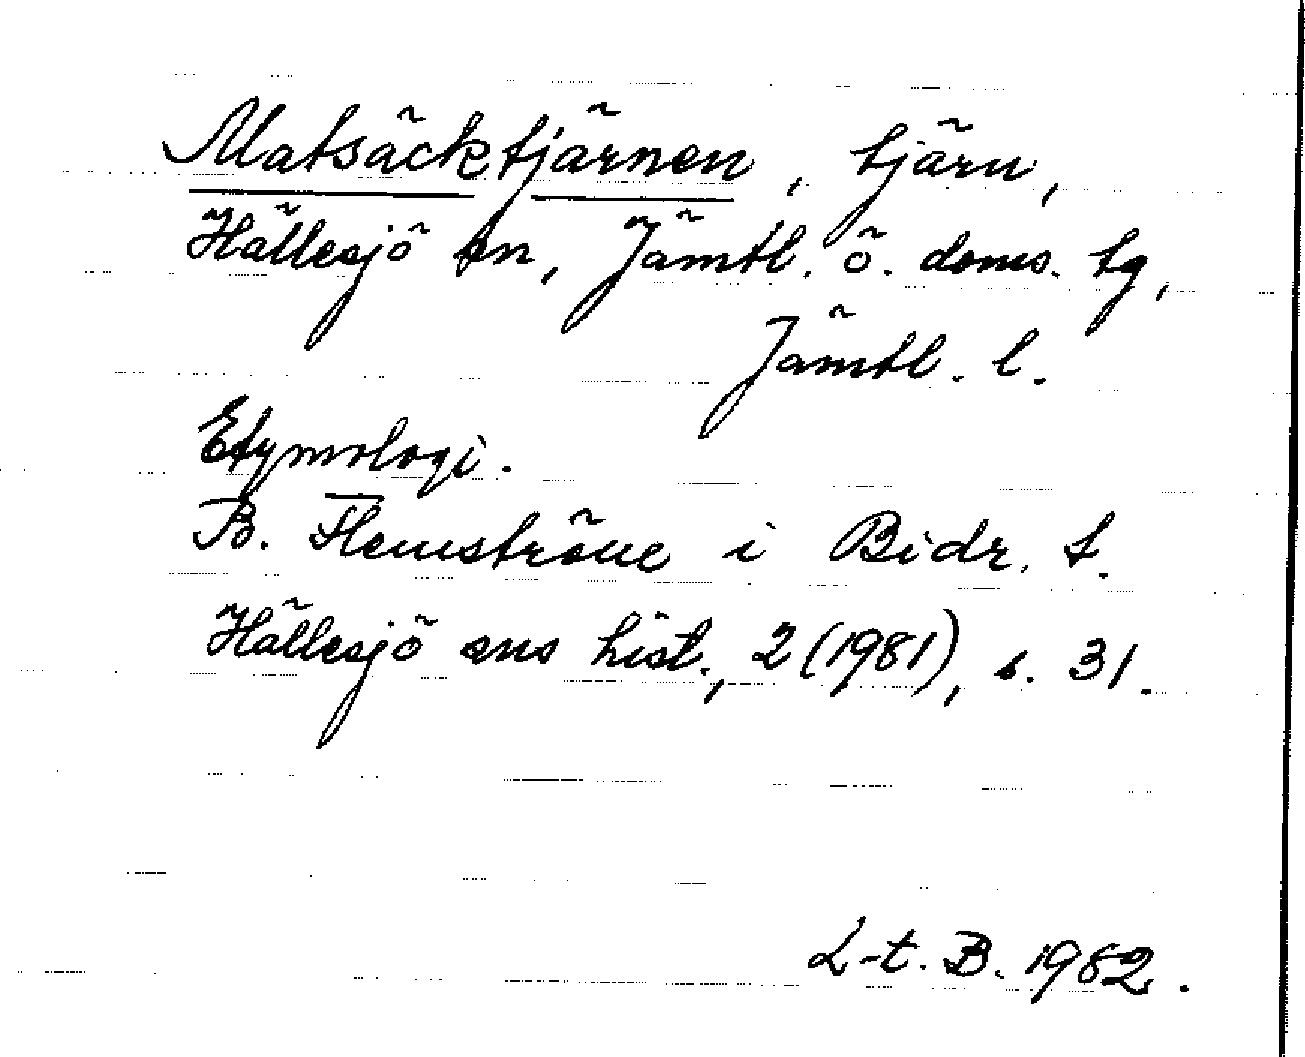 Matsäcktjärnen, tjärn,
Hällesjö sn, Jämtl. ö. doms. tg,
Jämtl. l.
Etymologi.
B. Flemström i Bidr. t.
Hällesjö sns hist., 2 (1981), s. 31.
L-t. B. 1982.